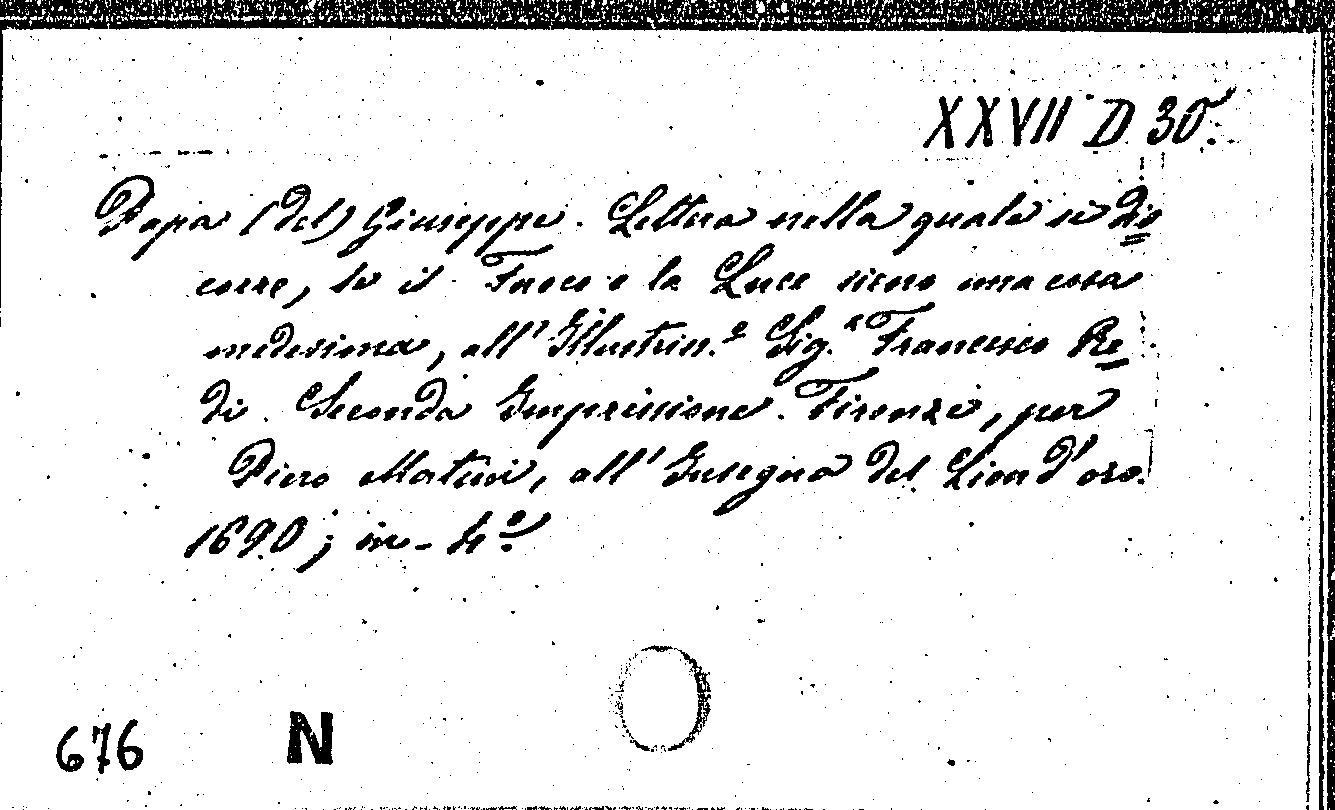 XXVII D 30.
Papa (del) Giuseppe. Lettera nella quale si dis=
corre, se il Fuoco e la Luce sieno una cosa
medesima, all'Illustriss.º Sig.ʳ Francesco Re=
di. Seconda Impressione. Firenze, per
Piero Matini, all'Insegna del Lion d'oro.
1690; in-4º.
676 N